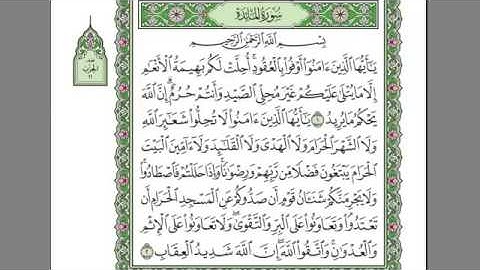 سُورَةُ المَائِدَةِ
بِسْمِ ٱللَّهِ ٱلرَّحْمَٰنِ ٱلرَّحِيمِ
يَٰٓأَيُّهَا ٱلَّذِينَ ءَامَنُوٓا۟ أَوْفُوا۟ بِٱلْعُقُودِ أُحِلَّتْ لَكُم بَهِيمَةُ ٱلْأَنْعَٰمِ
إِلَّا مَا يُتْلَىٰ عَلَيْكُمْ غَيْرَ مُحِلِّى ٱلصَّيْدِ وَأَنتُمْ حُرُمٌ إِنَّ ٱللَّهَ
يَحْكُمُ مَا يُرِيدُ ١ يَٰٓأَيُّهَا ٱلَّذِينَ ءَامَنُوا۟ لَا تُحِلُّوا۟ شَعَٰٓئِرَ ٱللَّهِ
وَلَا ٱلشَّهْرَ ٱلْحَرَامَ وَلَا ٱلْهَدْىَ وَلَا ٱلْقَلَٰٓئِدَ وَلَآ ءَآمِّينَ ٱلْبَيْتَ
ٱلْحَرَامَ يَبْتَغُونَ فَضْلًا مِّن رَّبِّهِمْ وَرِضْوَٰنًا وَإِذَا حَلَلْتُمْ فَٱصْطَادُوا۟
وَلَا يَجْرِمَنَّكُمْ شَنَـَٔانُ قَوْمٍ أَن صَدُّوكُمْ عَنِ ٱلْمَسْجِدِ ٱلْحَرَامِ أَن
تَعْتَدُوا۟ وَتَعَاوَنُوا۟ عَلَى ٱلْبِرِّ وَٱلتَّقْوَىٰ وَلَا تَعَاوَنُوا۟ عَلَى ٱلْإِثْمِ
وَٱلْعُدْوَٰنِ وَٱتَّقُوا۟ ٱللَّهَ إِنَّ ٱللَّهَ شَدِيدُ ٱلْعِقَابِ ٢